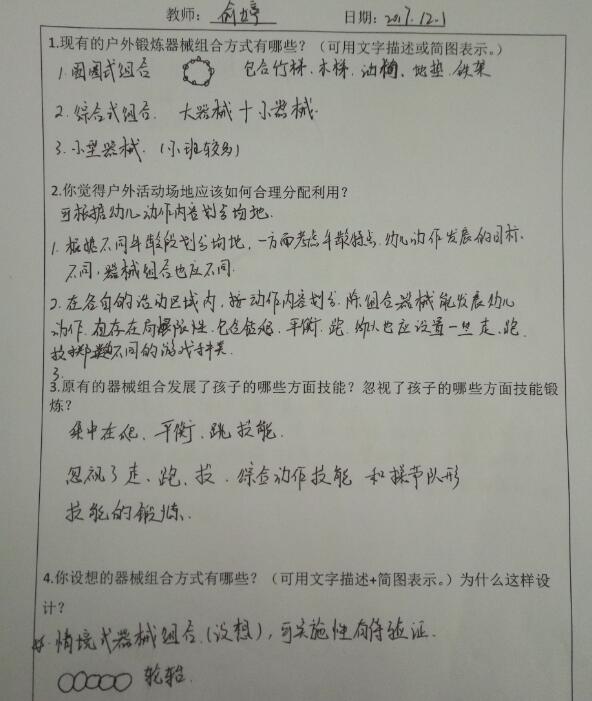 教师：俞婷 日期：2017.12.1
1.现有的户外锻炼器械组合方式有哪些？（可用文字描述或简图表示。）
1.团圆式组合 包含竹梯、木梯、油桶、地垫、铁架
2.综合式组合. 大器械+小器械.
3.小型器械.（小班较多）
2.你觉得户外活动场地应该如何合理分配利用？
可根据幼儿动作内容划分场地.
1.根据不同年龄段划分场地，一方面考虑年龄特点.幼儿动作发展的目标
不同，器械组合也应不同.
2.在各自的活动区域内，按动作内容划分.除组合器械能发展幼儿
动作.但存在局限性.包含钻爬、平衡、跳. 也应设置一些走、跑、
投掷 不同的游戏种类.
3.
3.原有的器械组合发展了孩子的哪些方面技能？忽视了孩子的哪些方面技能锻
炼？
集中在爬、平衡、跳技能.
忽视了走、跑、投.综合动作技能 和操节队形
技能的锻炼.
4.你设想的器械组合方式有哪些？（可用文字描述+简图表示。）为什么这样设
计？
情境式器械组合.（设想），可实施性有待验证.
轮胎.